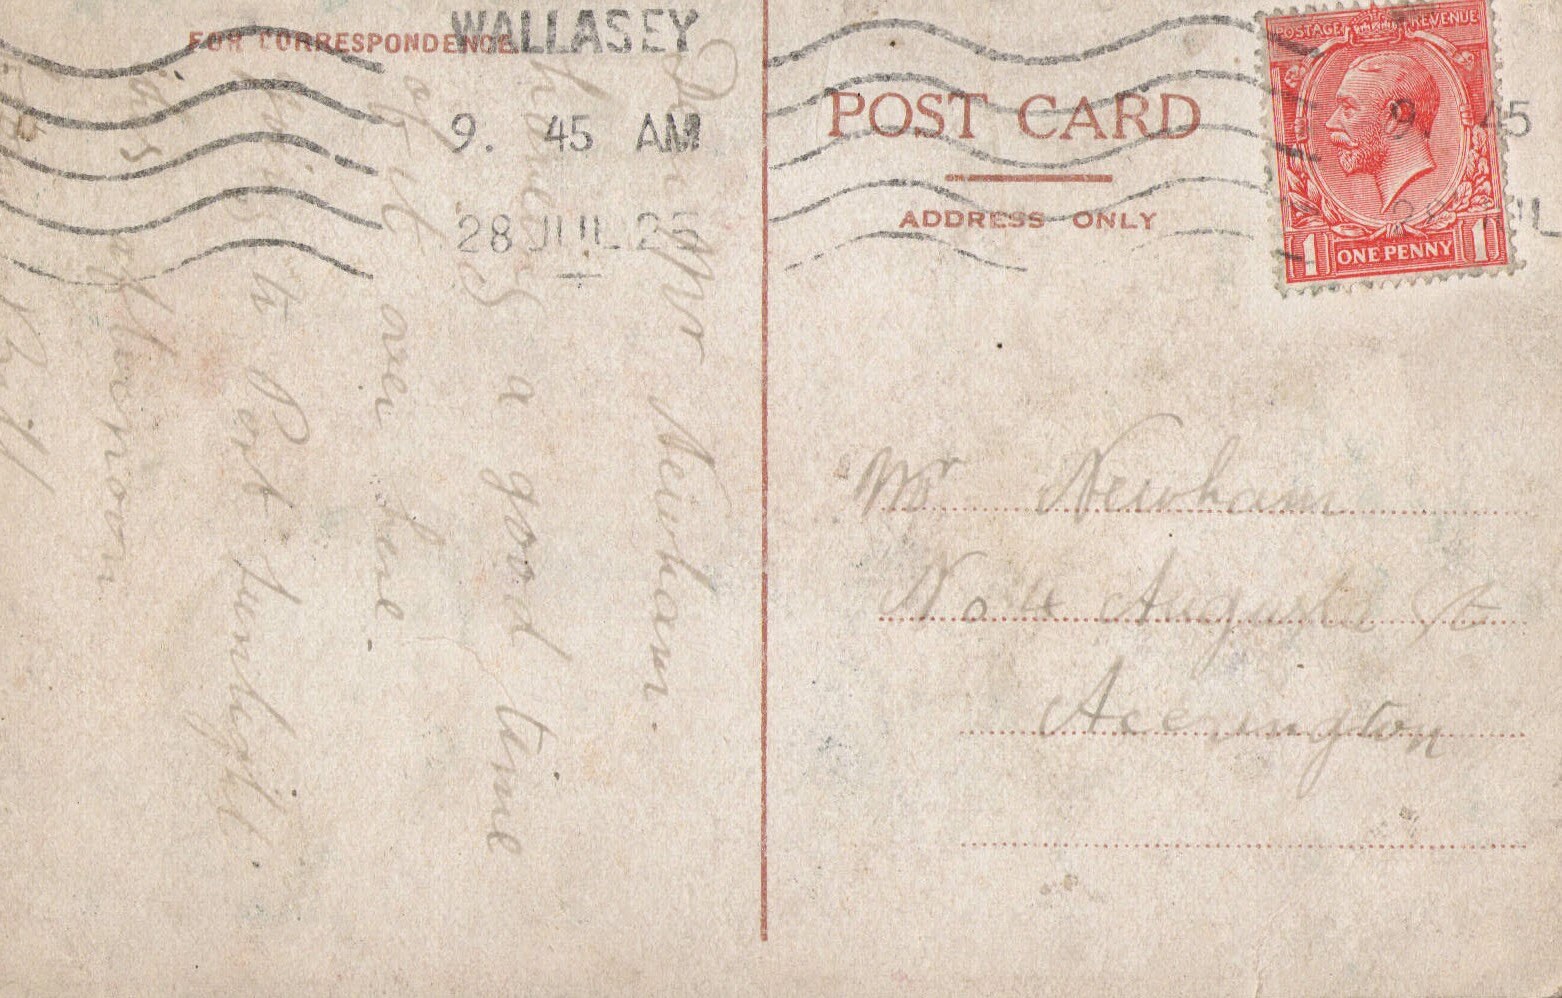 FOR CORRESPONDENCE
WALLASEY
9. 45 AM
28 JUL 25
POST CARD
ADDRESS ONLY
POSTAGE REVENUE
1 ONE PENNY 1
9. 45
28 JUL
Dear Mr Newham.
a good time
of it over here.
to Port Sunlight.
this afternoon
Bill
Mr Newham
No 4 Augusta St
Accrington